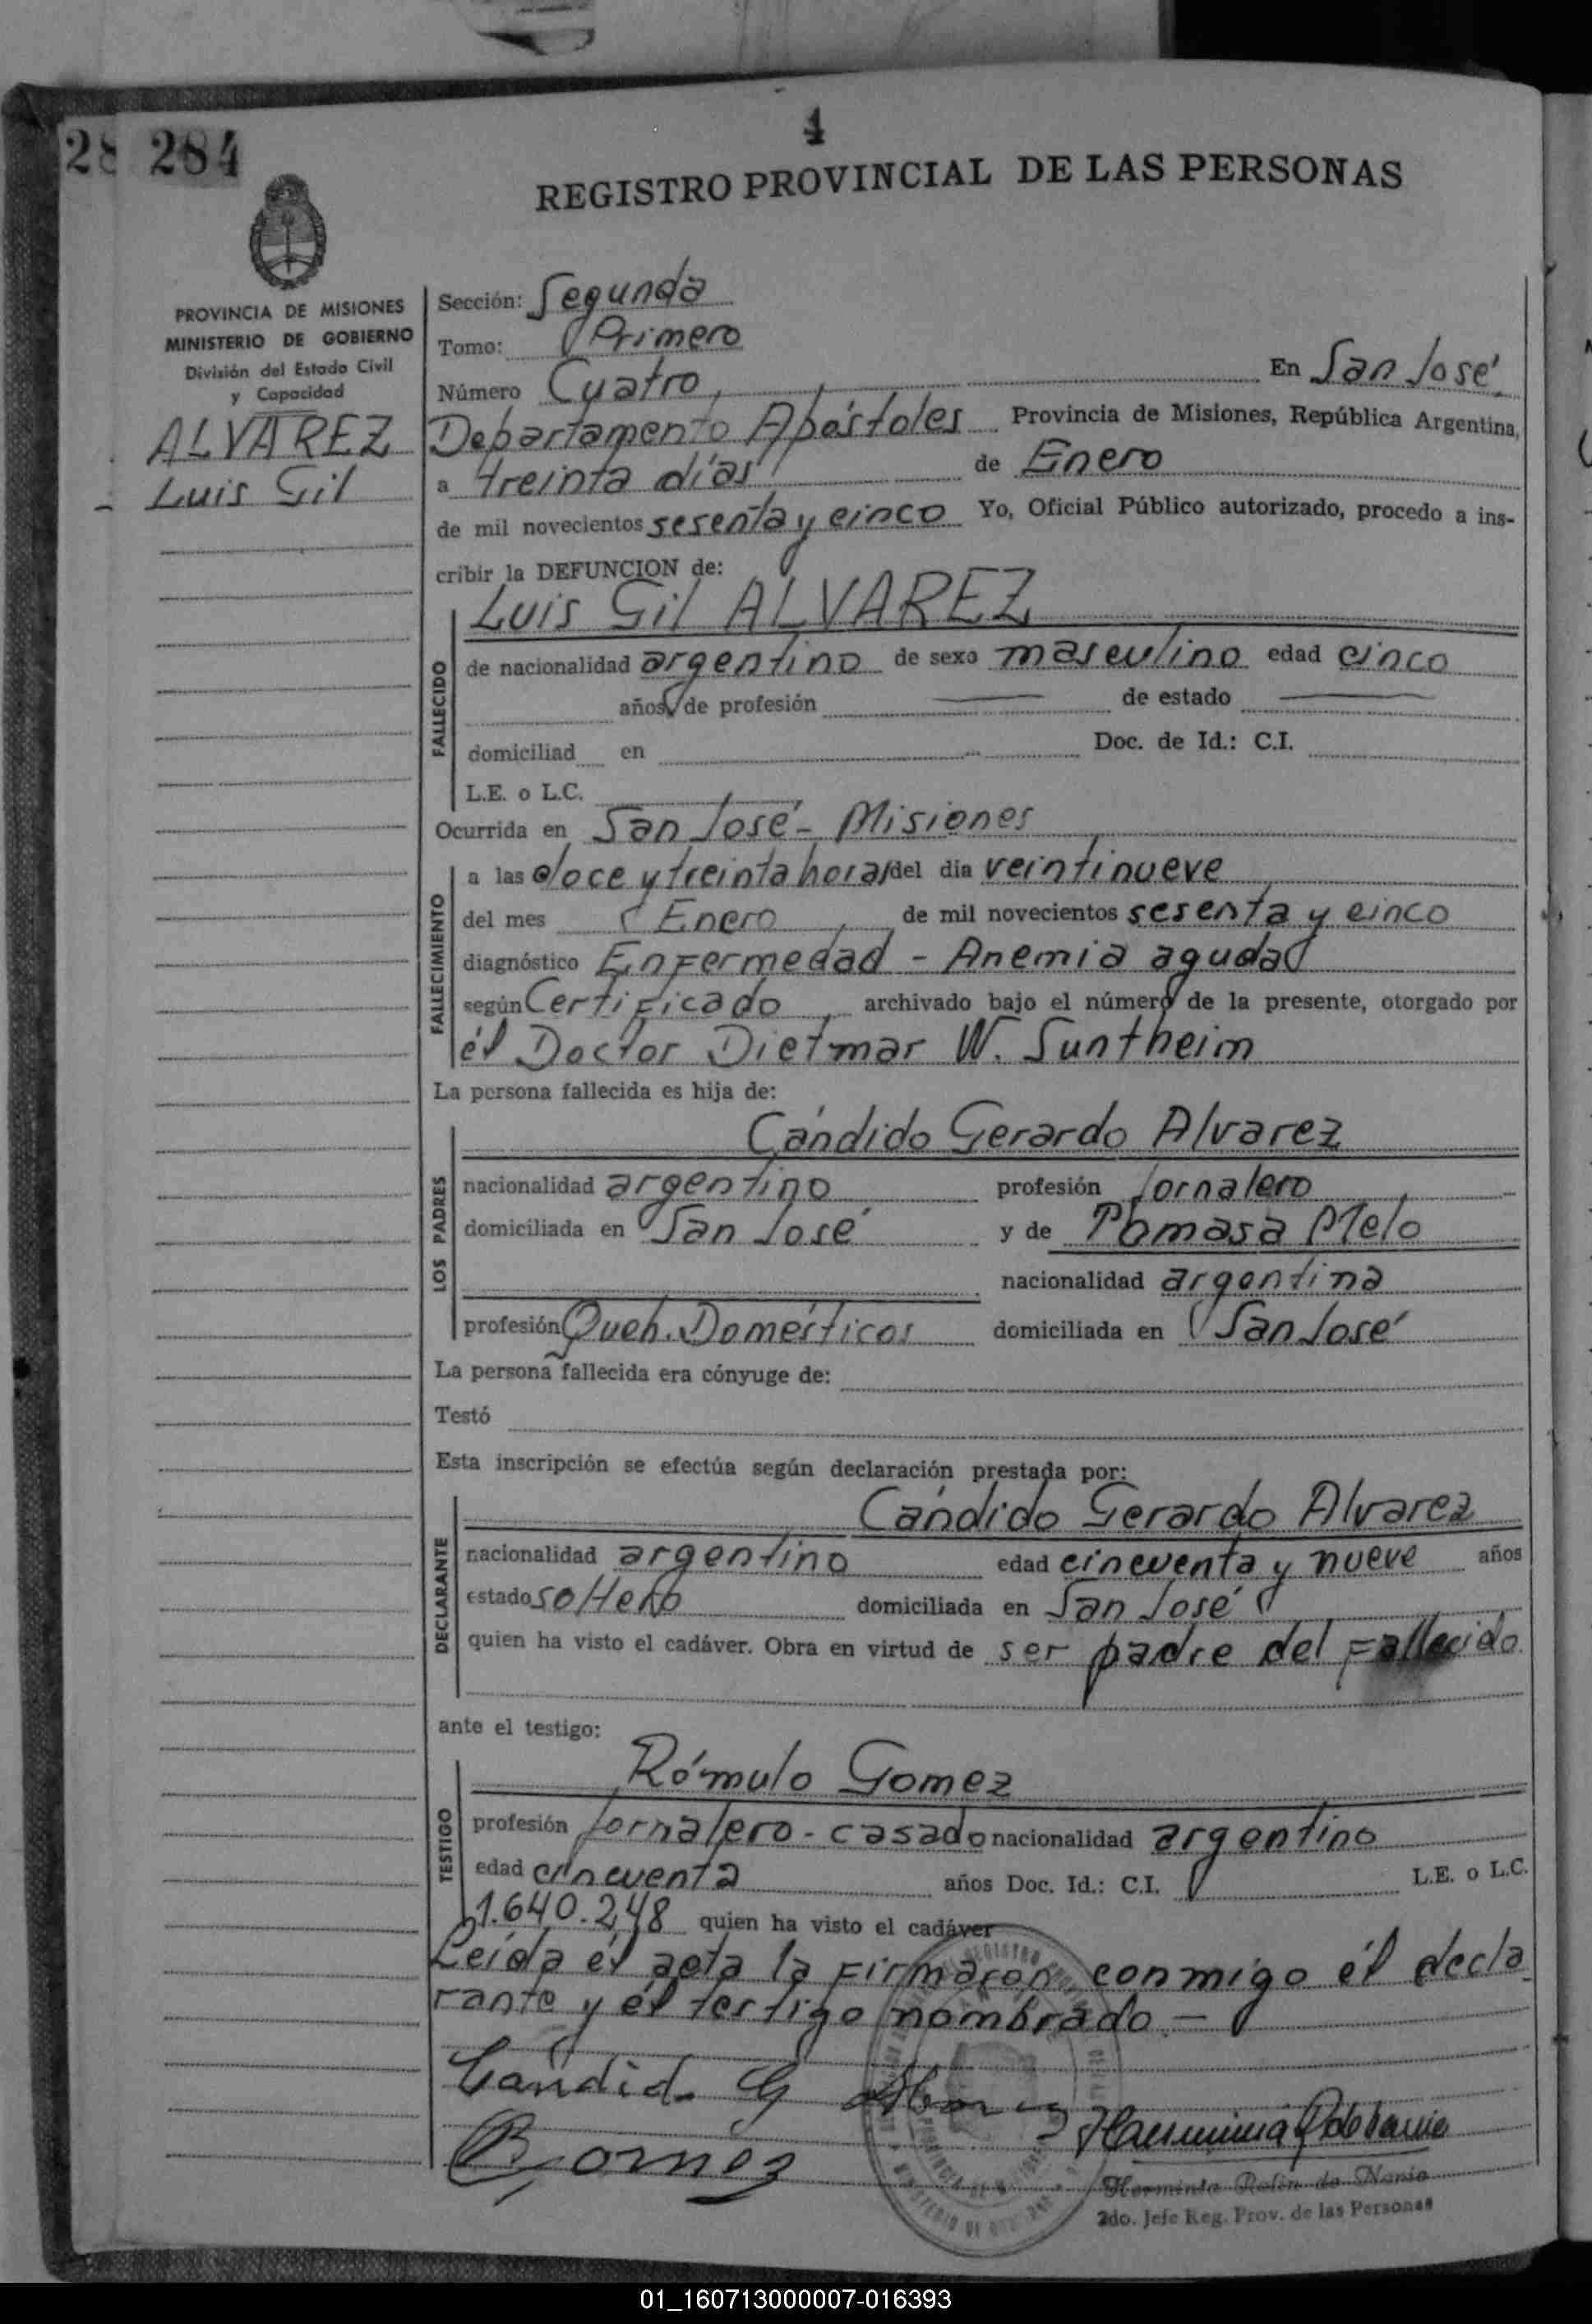 4
28 284
REGISTRO PROVINCIAL DE LAS PERSONAS
PROVINCIA DE MISIONES
MINISTERIO DE GOBIERNO
División del Estado Civil
y Capacidad
ALVAREZ
Luis Gil
Sección: Segunda
Tomo: Primero
Número Cuatro, En San José,
Departamento Apóstoles Provincia de Misiones, República Argentina,
a treinta días de Enero
de mil novecientos sesenta y cinco Yo, Oficial Público autorizado, procedo a ins-
cribir la DEFUNCION de:
Luis Gil ALVAREZ
FALLECIDO
de nacionalidad argentino de sexo masculino edad cinco
años, de profesión —— de estado ——
domiciliad en Doc. de Id.: C.I.
L.E. o L.C.
Ocurrida en San José - Misiones
FALLECIMIENTO
a las doce y treinta horas del día veintinueve
del mes Enero, de mil novecientos sesenta y cinco
diagnóstico Enfermedad - Anemia aguda
según Certificado, archivado bajo el número de la presente, otorgado por
él Doctor Dietmar W. Suntheim
La persona fallecida es hija de:
Cándido Gerardo Alvarez
LOS PADRES
nacionalidad argentino profesión Jornalero
domiciliada en San José y de Tomasa Melo
nacionalidad argentina
profesión Queh. Domésticos domiciliada en San José
La persona fallecida era cónyuge de:
Testó
Esta inscripción se efectúa según declaración prestada por:
Cándido Gerardo Alvarez
DECLARANTE
nacionalidad argentino edad cincuenta y nueve años
estado soltero domiciliada en San José
quien ha visto el cadáver. Obra en virtud de ser padre del fallecido.
ante el testigo:
Rómulo Gomez
TESTIGO
profesión Jornalero - casado nacionalidad argentino
edad cincuenta años Doc. Id.: C.I. L.E. o L.C.
1.640.248 quien ha visto el cadáver
Leída él acta la firmaron conmigo él decla
rante y él testigo nombrado. —
Cándido G Alvarez
R Gomez
Herminia R de Nanio
Herminia Rolin de Nanio
2do. Jefe Reg. Prov. de las Personas
01_160713000007-016393